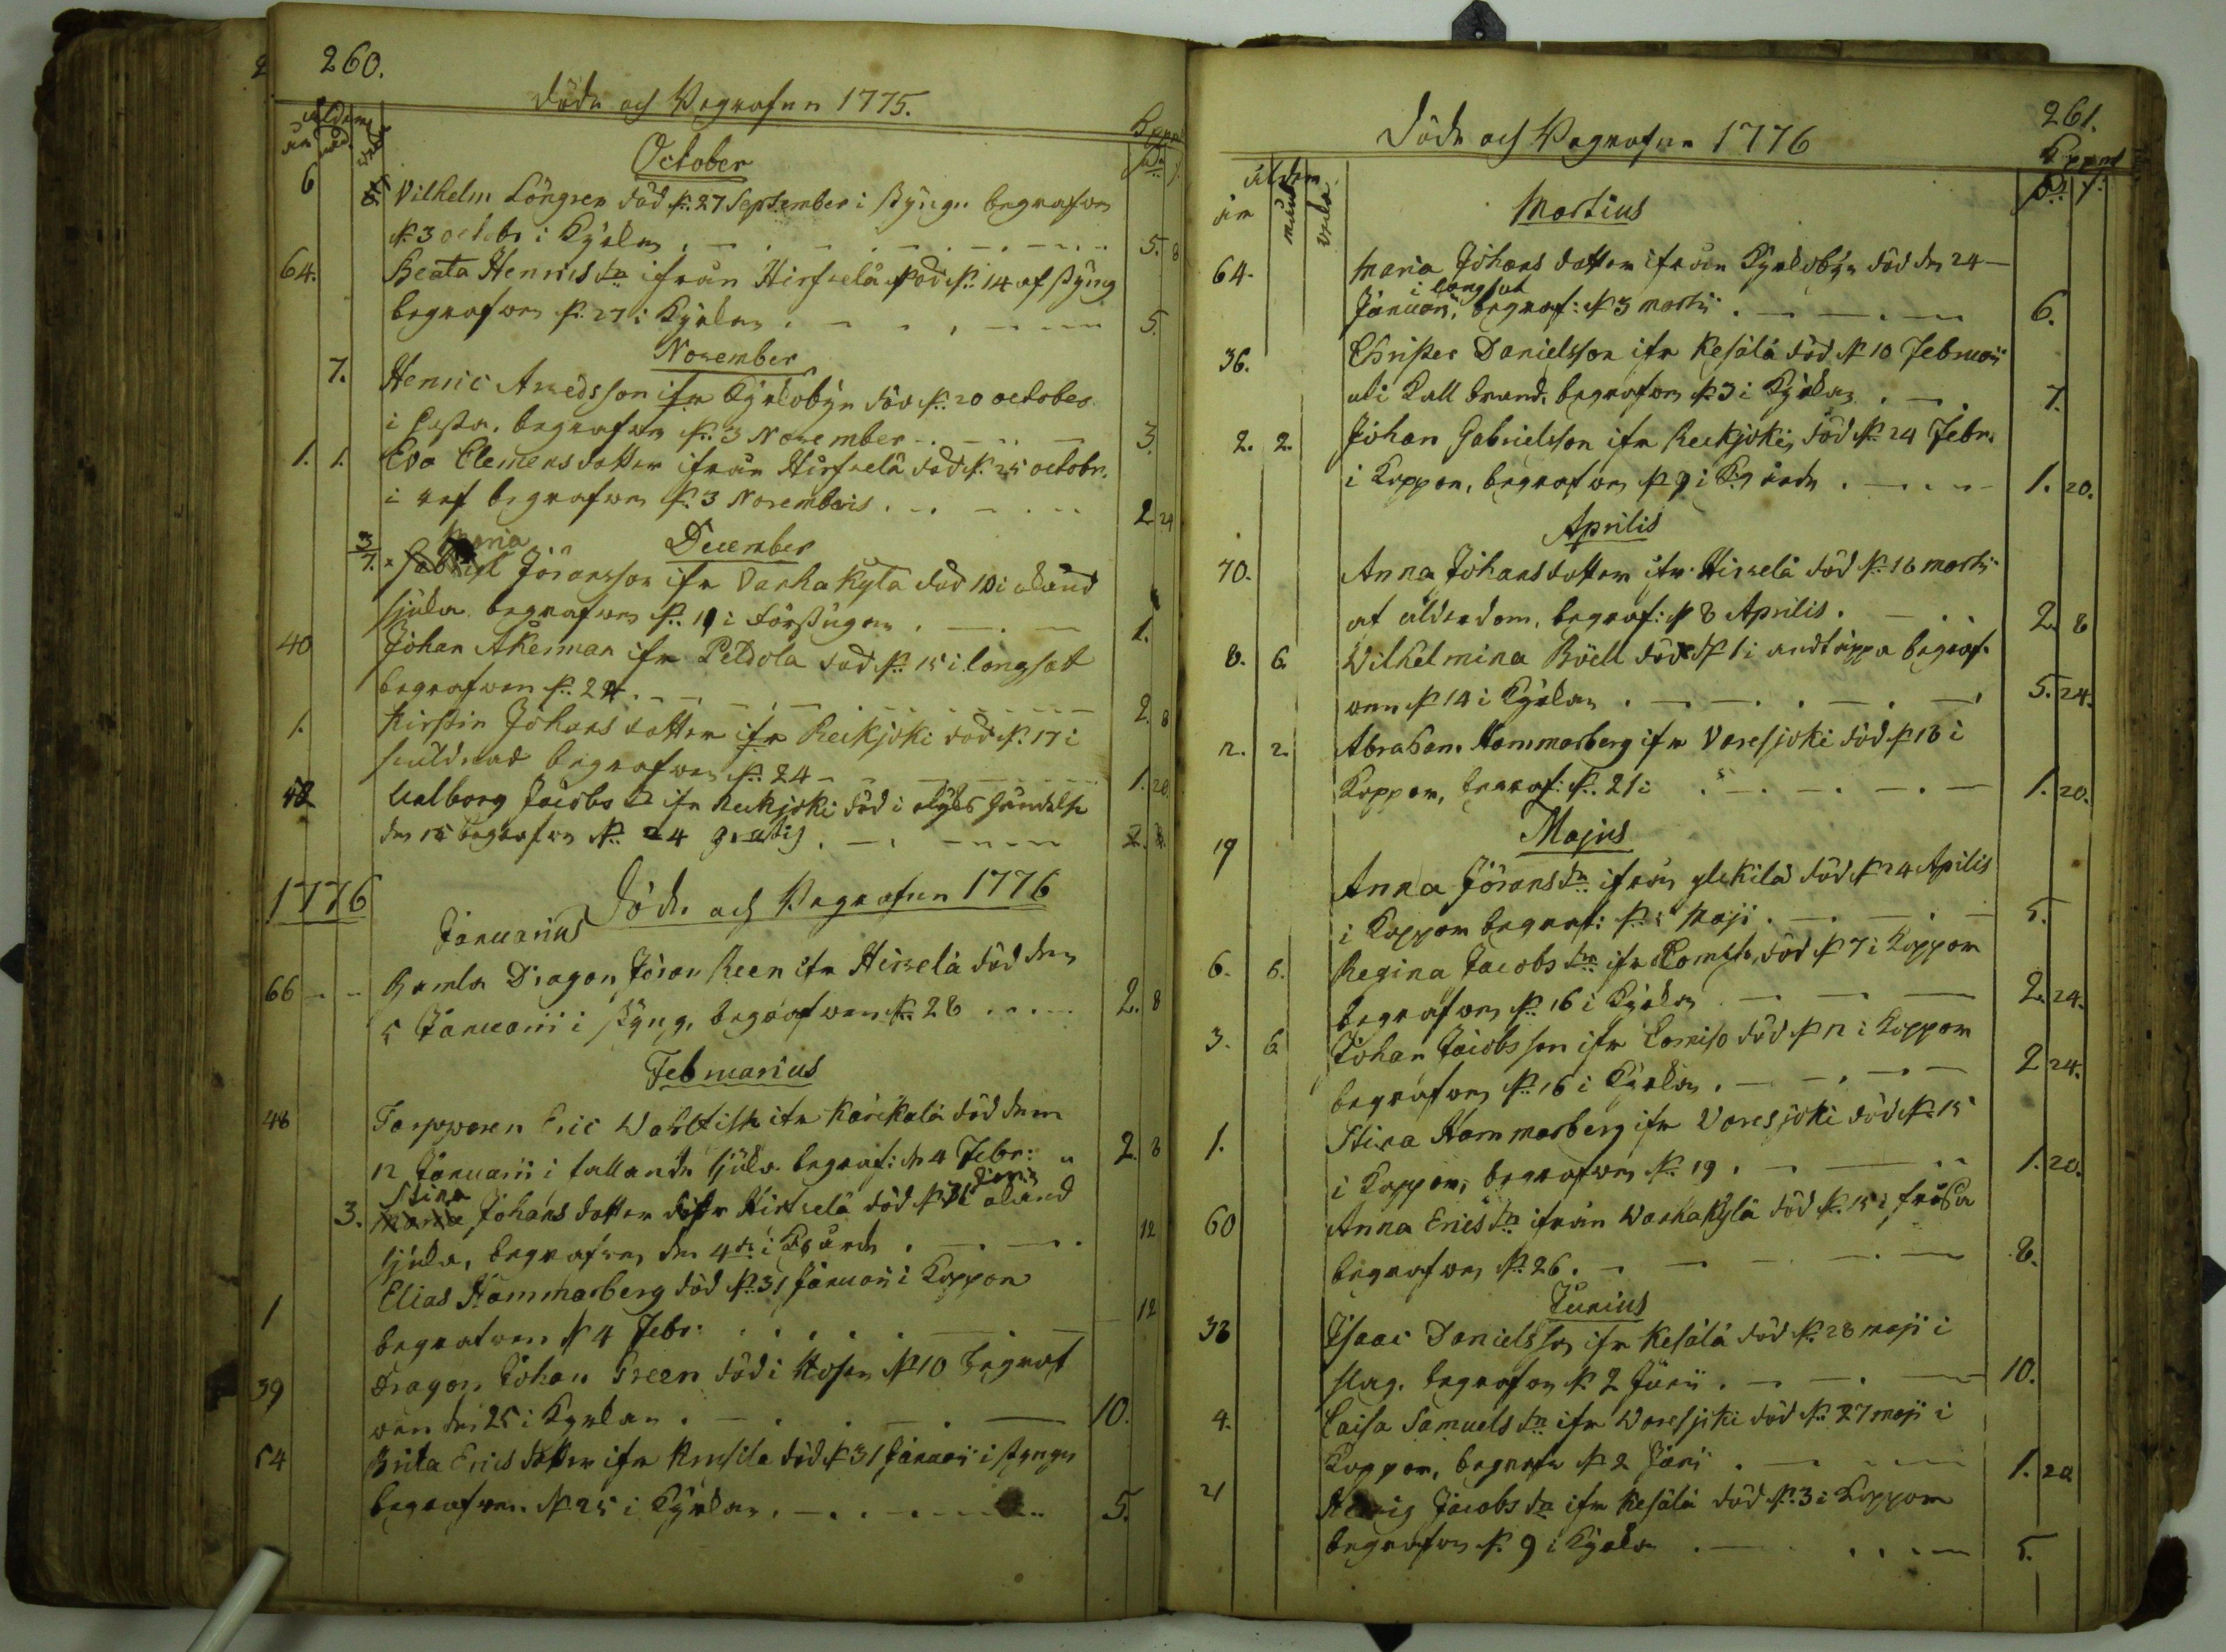 260.
Döde och Begrafne 1775.
ålder
åhr månd
October
6 Vilhelm Löngren död d: 27 September i styng begrafwen
d: 3 octobr i Kyrkan 5. 8
64. Beata Henricsdr ifrån Hirfselä död d: 14 af styng
begrafwen d: 27 i Kyrkan 5.
November
7. Henric Arvedsson ifr Kyrkobyn död d: 20 october
i begrafwen d: 3 November 3.
1. 1. Eva Clemensdotter ifrån Hirfselä död d: 25 octobr.
i begrafwen d: 3 Novembris 2 24
Maria December
3/7. Jöransson ifr Vanhakylä död 10 i okänd
sjukd. begrafwen d: 19 i 1.
40 Johan Åkerman ifr Peldola död d: 15 i långsot
begrafwen d: 24 2. 8
1. Kirstin Johansdotter ifr Reckjoki död d: 17 i
begrafwen d: 24 1. 20.
Walborg Jacobs dr ifr Reckjoki död i olyckshändelse
den 15 begrafwen d: 24 gratis
1776 Döde och Begrafne 1776
Januarius
66 Gamle Dragon Jöran Reen ifr Hirvelä död den
5 Januarii i styng, begrafwen d: 28 2. 8
Februarius
48 Torpparen Eric Wahlfisk ifr Kärikalä död den
12 Januarii i fallande sjukd. begraf: d: 4 Febr: 2. 8
Stina
3. Maria Johansdotter ifr Hirfselä död d: 31 okänd
sjukd, begrafwen den 4de i 12
1 Elias Hammarberg död d: 31 Januarii i Koppor
begrafwen d 4 Febr: 12
39 Dragon Johan Green död i Hosta d: 10 begraf
wen den 25 i Kyrkan 10.
54 Brita Ericsdotter ifr död d: 31 Januarii i styng
begrafwen d: 25 i Kyrkan 5.
261.
Döde och Begrafne 1776
ålder
åhr månd
Martius
64. Maria Johansdotter ifrån Kyrkobyn död den 24
i långsot
Januarii, begraf: d 3 martii 6.
36. Christer Danielsson ifr Kesälä död d: 10 Februarii
uti Kallbrand, begrafwen d: 3 i Kyrkan 7.
2. 2. Johan Gabrielsson ifr Reckjoki, död d: 24 Febr.
i Koppor, begrafwen d: 9 i 1. 20.
Aprilis
70. Anna Johansdotter ifr Hirvelä död d: 16 martii
af ålderdom, begraf: d 8 Aprilis. 2. 8
8. 6. Wilhelmina Böell död d: 1 i andtäppa begraf-
wen d: 14 i Kyrkan 5. 24.
2. 2. Abraham Hammarberg ifr Varesjoki död d: 18 i
Koppor, begraf: d: 21 i 1. 20.
Majus
19 Anna Jöransdr ifrån ylikilä död d: 24 Aprilis
i Koppor begraf: d: 5 Maji 5.
6. 6. Regina Jacobsdr ifr död d: 7 i Koppor
begrafwen d: 16 i Kyrkan 2. 24.
3. 6. Johan Jacobsson ifr död d: 12 i Koppor
begrafwen d: 16 i Kyrkan 2 24.
1. Stina Hammarberg ifr Varesjoki död d: 15
i Koppor, begrafwen d: 19 1. 20.
60 Anna Ericsdr ifrån Wanhakylä död d: 15 i frossa
begrafwen d: 26. 8.
Junius
38 Isaac Danielsson ifr Kesälä död d: 28 maji i
slag. begrafwen d: 2 Junii 10.
4. Caisa Samuelsdr ifr Waresjoki död d: 27 maji i
Koppor, begrafw d: 2 Junii 1. 20
21 Hedvig Jacobsdr ifr Kesälä död d: 3 i Koppor
begrafwen d: 9 i Kyrkan 5.